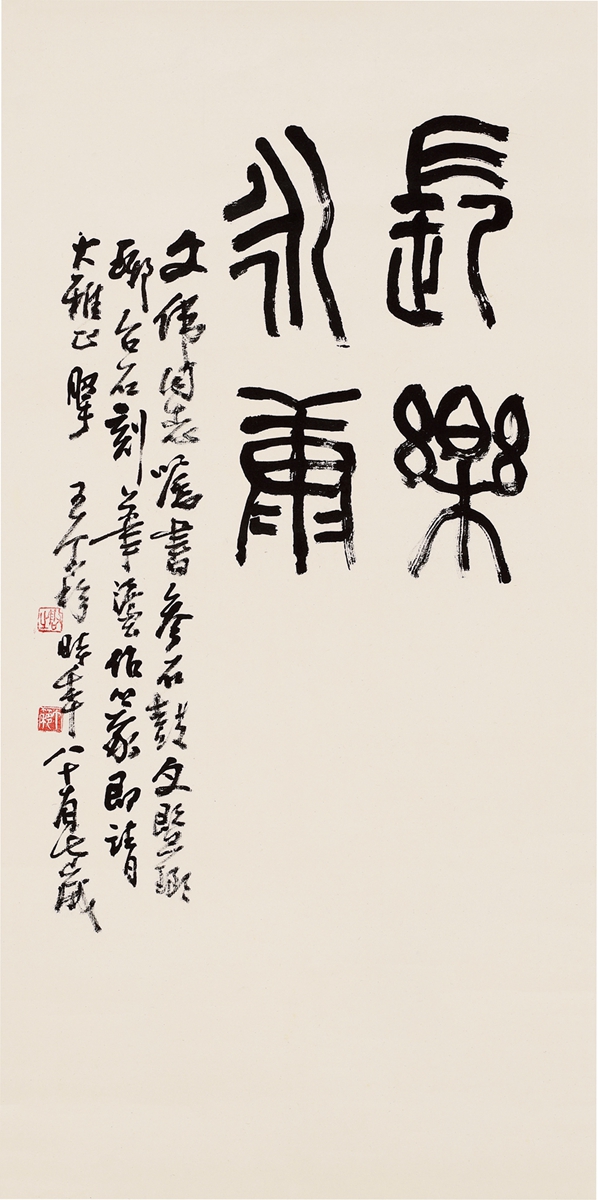 長樂
永康
文偉同志嘱書參石鼓文暨瑯
琊台石刻筆灋作篆即請
大雅正掔 王个簃時年八十有七歲